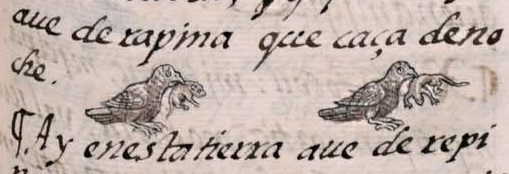 aue de rapina que caça de no
che.
¶ Ay en esta tierra aue de repi